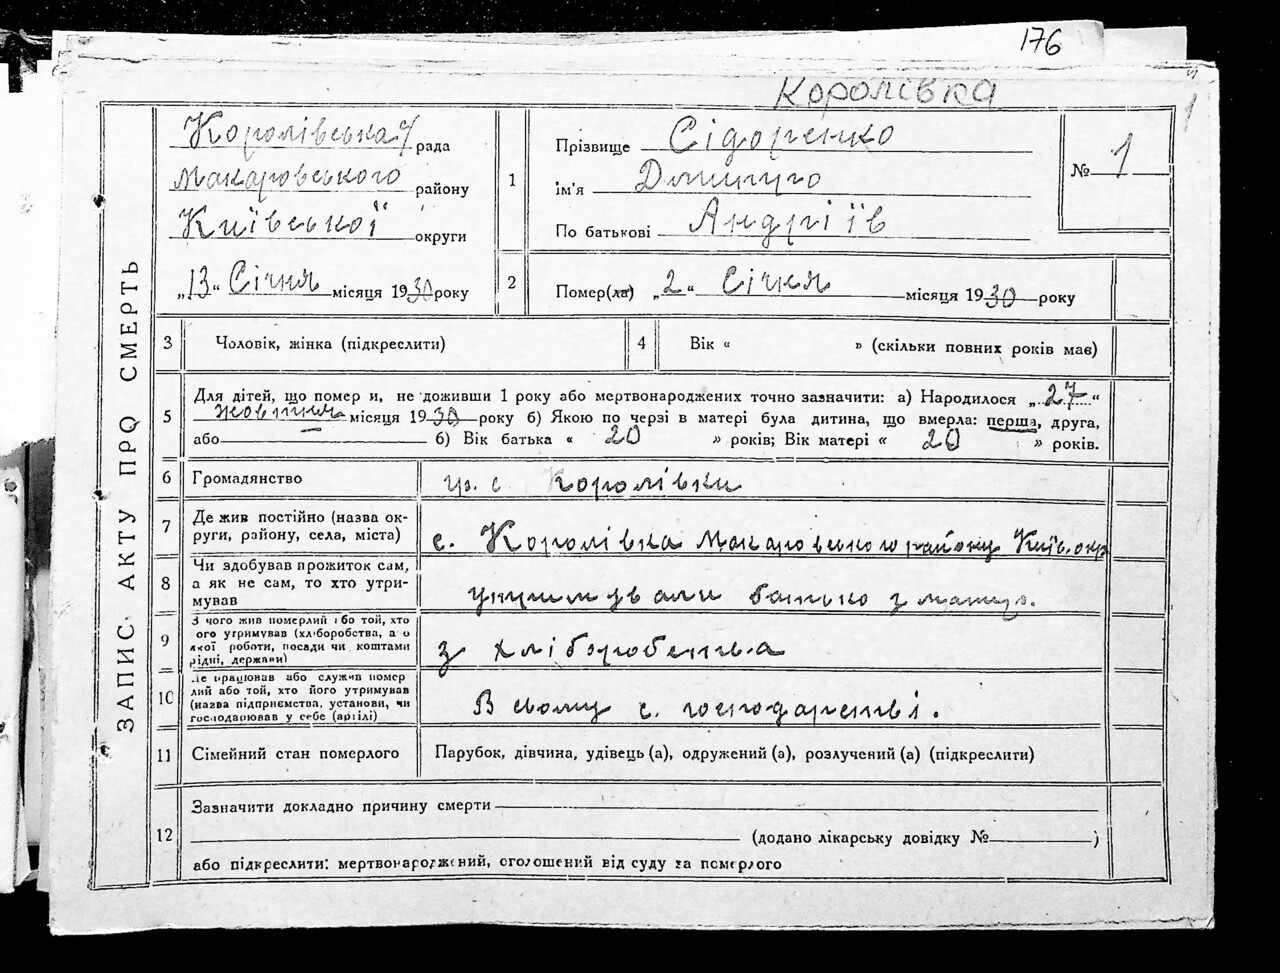 176
Королівка
1
ЗАПИС АКТУ ПРО СМЕРТЬ
Королівська рада
Макаровського району
Київської округи
„13“ Січня місяця 1930 року
1
Прізвище Сідоренко
Ім'я
По батькові Андріїв
№ 1
2
Помер(ла) „2“ Січня місяця 1930 року
3 Чоловік, жінка (підкреслити)
4 Вік « » (скільки повних років має)
5
Для дітей, що помер и, не доживши 1 року або мертвонароджених точно зазначити: а) Народилося „27“
жовтня місяця 1930 року б) Якою по черзі в матері була дитина, що вмерла: перша, друга,
або б) Вік батька « 20 » років; Вік матері « 20 » років.
6 Громадянство гр. с Королівки
7 Де жив постійно (назва ок-
руги, району, села, міста) с. Королівка Макаровського району Київ. окр
8 Чи здобував прожиток сам,
а як не сам, то хто утри-
мував утримували батько з матір.
9 З чого жив померлий або той, хто
його утримував (хліборобства, а о
якої роботи, посади чи коштами
рідні, держави) з хліборобства
10 Де працював або служив помер
лий або той, хто його утримував
(назва підприємства, установи, чи
господарював у себе (артілі) В свому с. господарстві.
11 Сімейний стан померлого Парубок, дівчина, удівець (а), одружений (а), розлучений (а) (підкреслити)
12
Зазначити докладно причину смерти
(додано лікарську довідку № )
або підкреслити: мертвонароджений, оголошений від суду за померлого